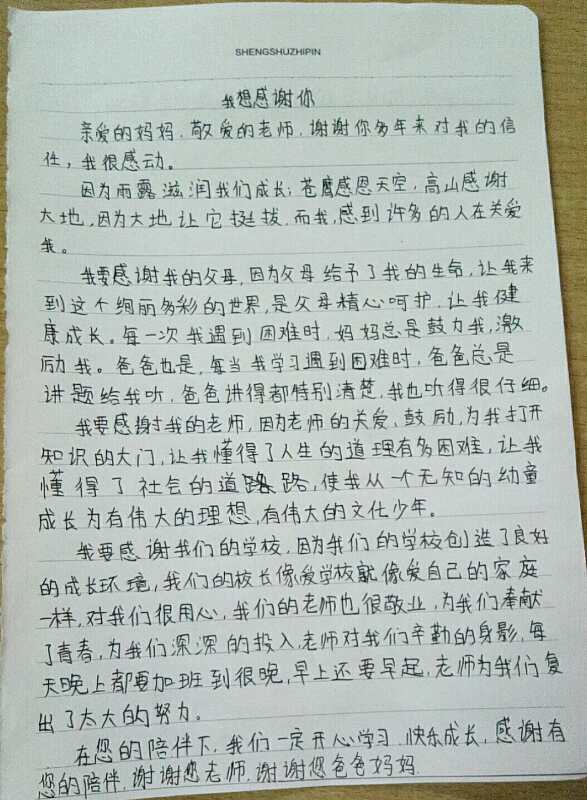 SHENGSHUZHIPIN
我想感谢你
亲爱的妈妈，敬爱的老师，谢谢你多年来对我的信
任，我很感动。
因为雨露滋润我们成长；苍鹰感恩天空，高山感谢
大地，因为大地让它挺拔，而我，感到许多的人在关爱
我。
我要感谢我的父母，因为父母给予了我的生命，让我来
到这个绚丽多彩的世界，是父母精心呵护，让我健
康成长。每一次我遇到困难时，妈妈总是鼓力我，激
励我。爸爸也是，每当我学习遇到困难时，爸爸总是
讲题给我听，爸爸讲得都特别清楚，我也听得很仔细。
我要感谢我的老师，因为老师的关爱，鼓励，为我打开
知识的大门，让我懂得了人生的道理有多困难，让我
懂得了社会的道路，使我从一个无知的幼童
成长为有伟大的理想，有伟大的文化少年。
我要感谢我们的学校，因为我们的学校创造了良好
的成长环境，我们的校长像爱学校就像爱自己的家庭
一样，对我们很用心，我们的老师也很敬业，为我们奉献
了青春，为我们深深的投入，老师对我们辛勤的身影，每
天晚上都要加班到很晚，早上还要早起，老师为我们复
出了太大的努力。
在您的陪伴下，我们一定开心学习，快乐成长，感谢有
您的陪伴，谢谢您老师，谢谢您爸爸妈妈。